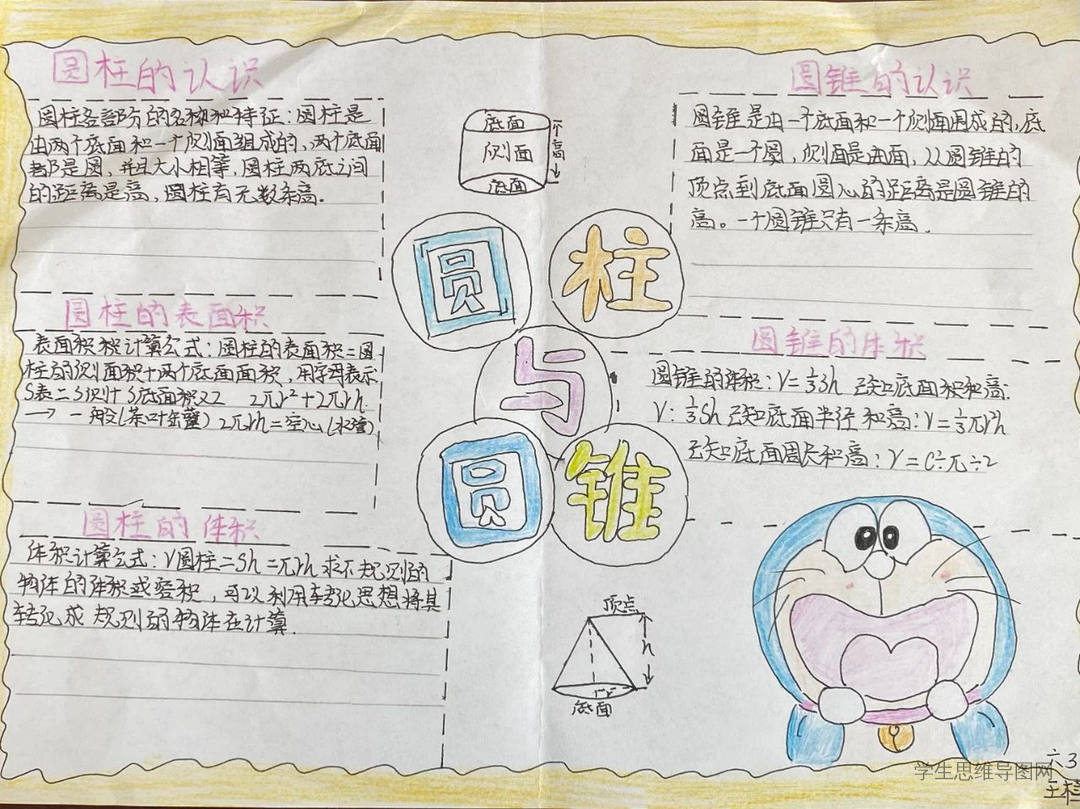 圆柱的认识
圆柱各部分的名称和特征:圆柱是
由两个底面和一个侧面组成的,两个底面
都是圆,并且大小相等,圆柱两底之间
的距离是高,圆柱有无数条高.
圆柱的表面积
表面积积计算公式:圆柱的表面积=圆
柱的侧面积+两个底面面积,用字母表示
S表=S侧+S底面积x2 2πr²+2πrh
→一般(茶叶罐) 2πrh=空心(水管)
圆柱的体积
体积计算公式:V圆柱=Sh=πrh 求不规则的
物体的体积或容积,可以利用转化思想将其
转化成规则的物体在计算.
底面
侧面
高
底面
圆
柱
与
圆
锥
顶点
h
r
底面
圆锥的认识
圆锥是由一个底面和一个侧面围成的,底
面是一个圆,侧面是曲面,从圆锥的
顶点到底面圆心的距离是圆锥的
高。一个圆锥只有一条高.
圆锥的体积
圆锥的体积:V=⅓Sh 已知底面积和高:
V:⅓Sh 已知底面半径和高:V=⅓πr²h
已知底面周长和高:V=C÷π÷2
六3
学生思维导图网